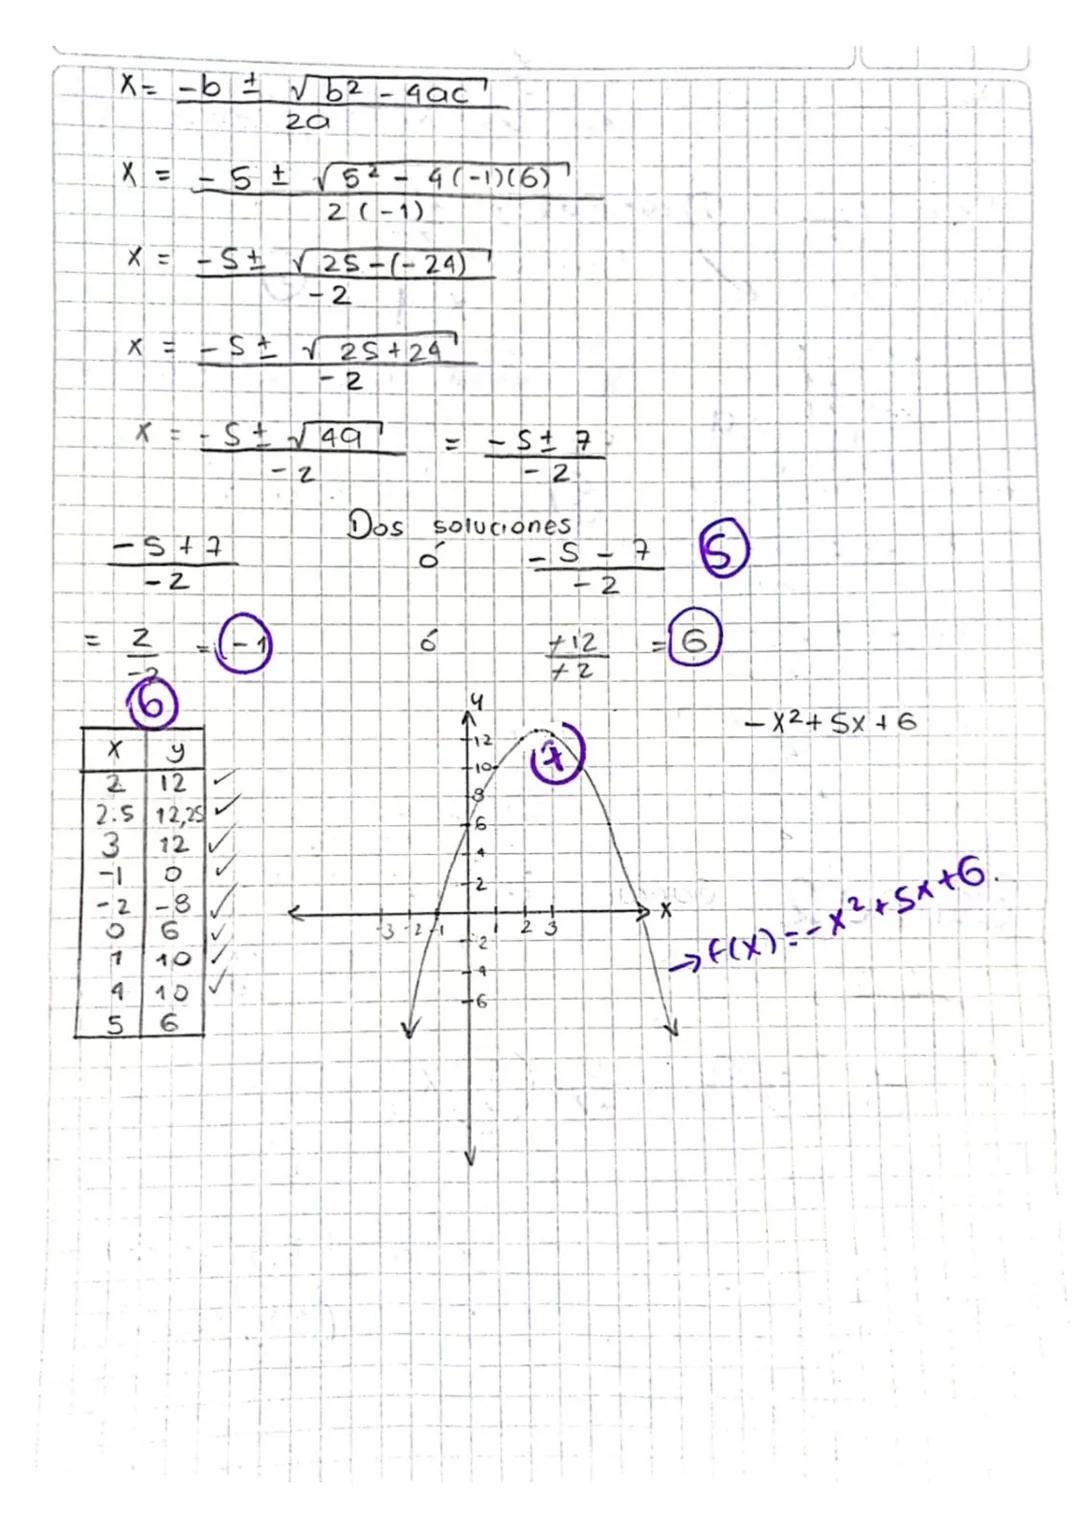 x = -b ± √b² - 4ac / 2a
x = -5 ± √5² - 4(-1)(6) / 2(-1)
x = -5 ± √25-(-24) / -2
x = -5 ± √25+24 / -2
x = -5 ± √49 / -2 = -5 ± 7 / -2
Dos soluciones
-5+7 / -2 ó -5-7 / -2 5
= 2 / -2 = -1 ó +12 / +2 = 6
6
x y
2 12 ✓
2.5 12,25 ✓
3 12 ✓
-1 0 ✓
-2 -8 ✓
0 6 ✓
1 10 ✓
4 10 ✓
5 6
y
12
10
8
6
4
2
-3 -2 -1 1 2 3 x
-2
-4
-6
7
-x²+5x+6
→ f(x)=-x²+5x+6.